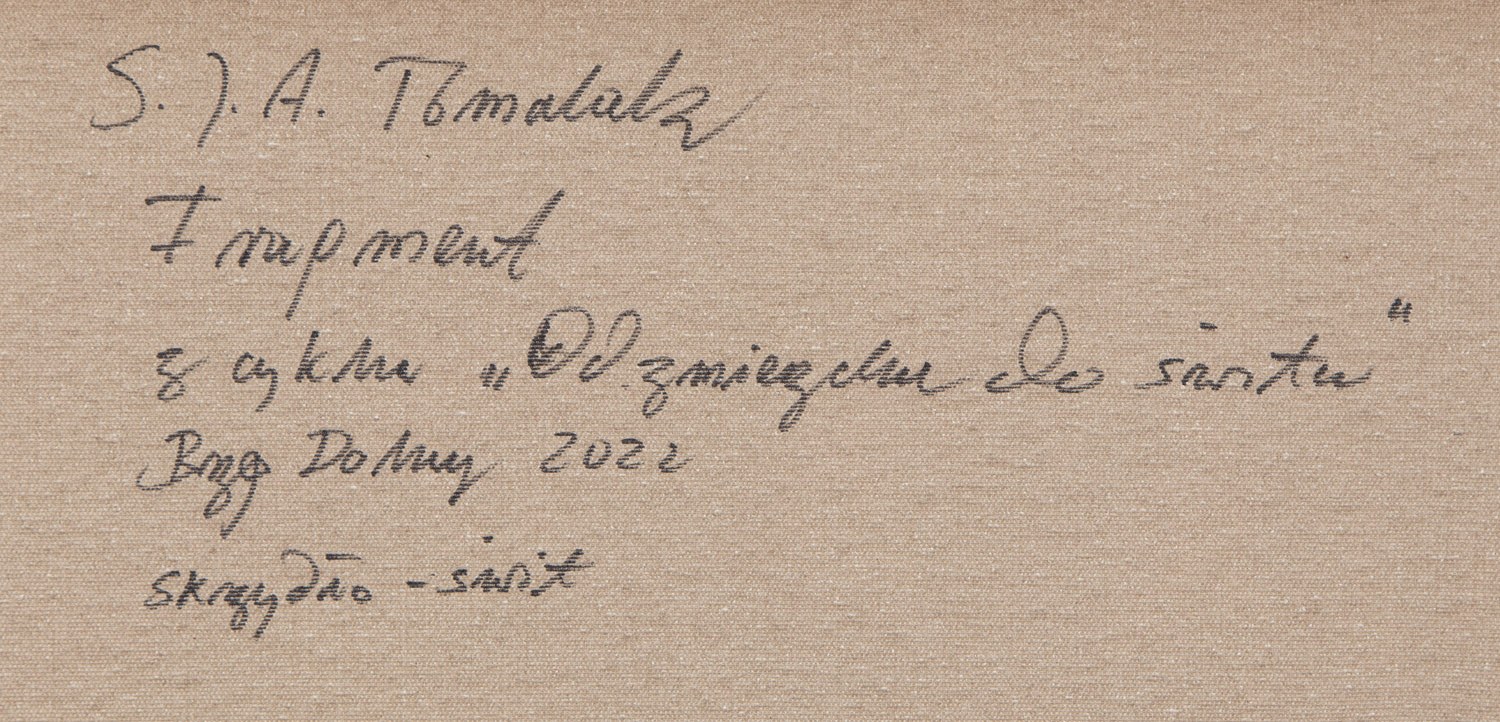 S. J. A. Tomalak
Fragment
z cyklu „Od zmierzchu do świtu"
Brzeg Dolny 2022
skrzydło - świt